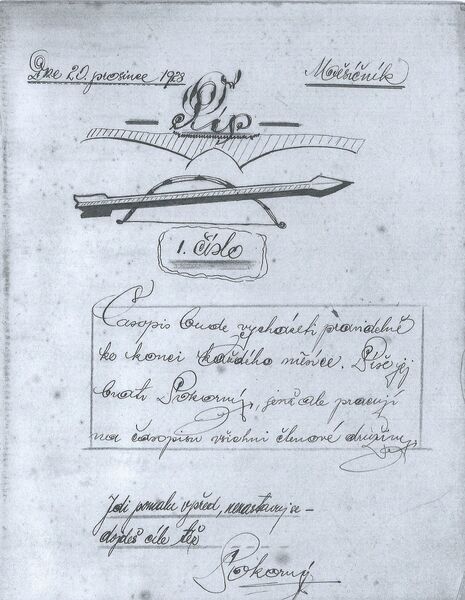 Dne 20. prosince 1928
Měsíčník
Šíp
1. číslo
Časopis bude vycházeti pravidelně
ko konci každého měsíce. Píše jej
bratr Pokorný, jenž ale pracují
na časopisu všichni členové družiny
Jdi pomalu vpřed, nezastavuj a –
dojdeš cíle též
Pokorný